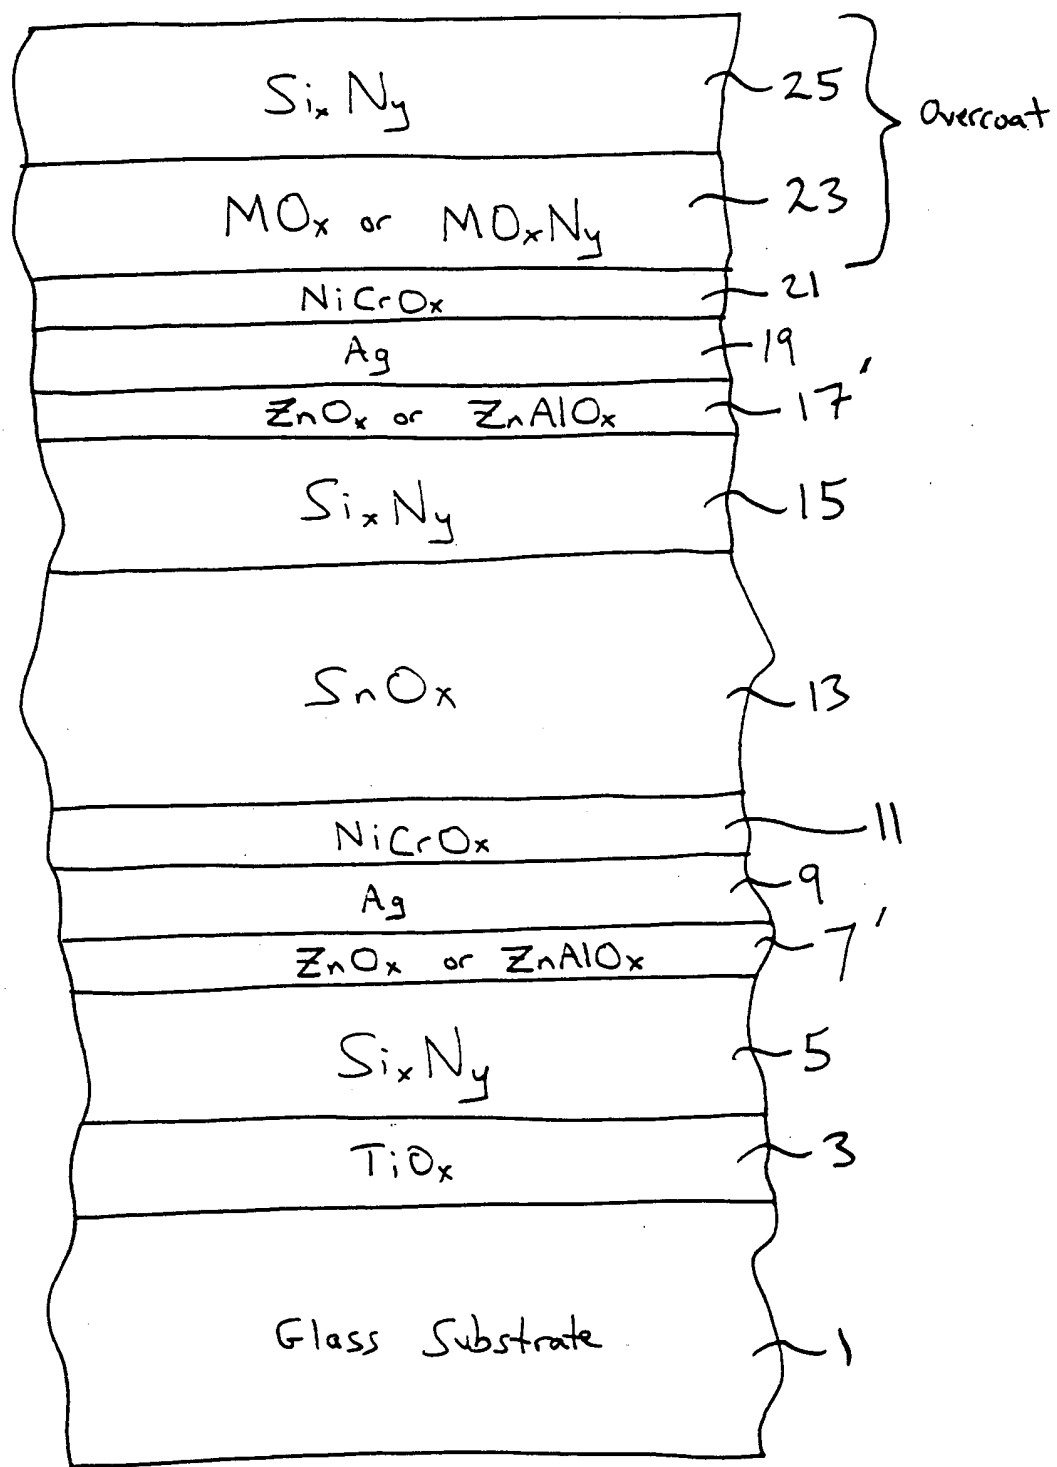 SixNy 25
Overcoat
MOx or MOxNy 23
NiCrOx 21
Ag 19
ZnOx or ZnAlOx 17'
SixNy 15
SnOx 13
NiCrOx 11
Ag 9
ZnOx or ZnAlOx 7'
SixNy 5
TiOx 3
Glass Substrate 1